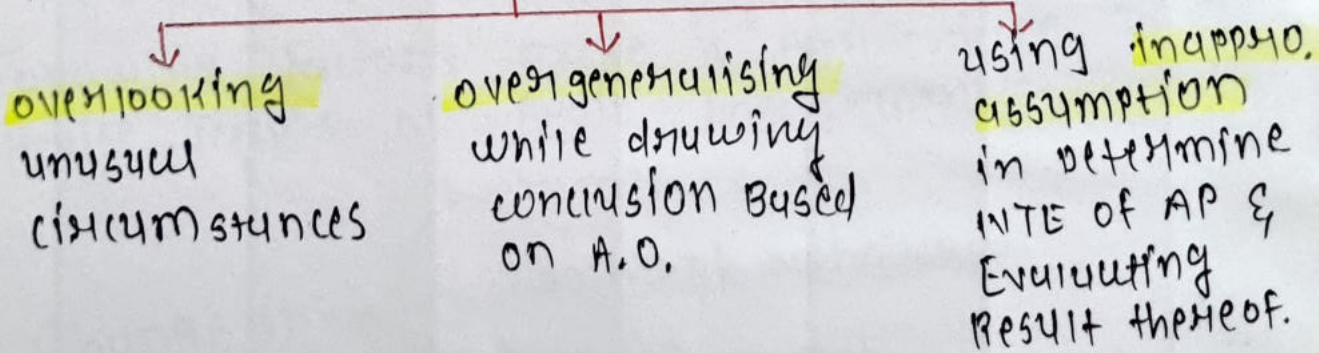 overlooking
unusual
circumstances
overgeneralising
while drawing
conclusion Based
on A.O.
using inappro.
assumption
in Determine
NTE of AP &
Evaluating
Result thereof.